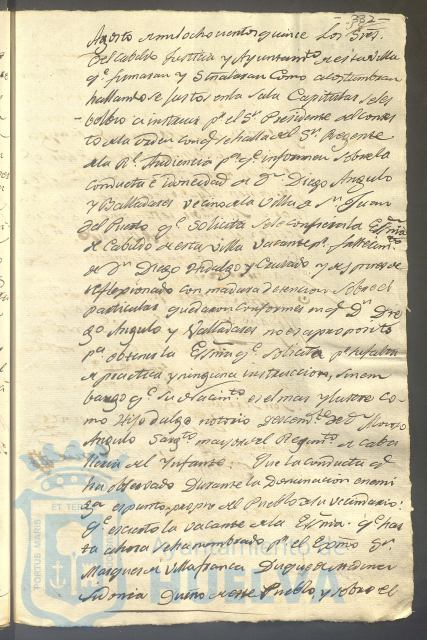 -332-
Agosto de mil ochocientos quince los Sres.
Del Cabildo Justicia y Ayuntamto. de esta villa
qe. firmaran y señalaran como acostumbran
hallandose juntos en la sala Capitular se le
a instancia pr. el Sr. Presidente del
de la orden con qe. se halla del Sr. Regente
de la Rl. Audiencia pa. qe. informen sobre la
conducta e idoneidad de Dn. Diego Angulo
y Valladares vecino de la Villa de Sn. Juan
del Puerto qe. solicita se le confiera la Esñia.
de Cabildo de esta villa vacante pr. fallecimto.
de Dn. Diego Hidalgo y y despues de
reflexionado con madura detencion sobre el
particular quedaron conformes en qe. Dn. Die
go Angulo y Valladares no es a proposito
pa. obtener la Esñia. qe. solicita pr. su falta
de practica y ninguna instruccion, sin em
bargo qe. su nacimto. es el mas ylustre co
mo Hijodalgo notorio descendte. de Dn. Alonso
Angulo Sargto. mayor del Regimto. de Caba
lleria del Ynfante. Que la conducta qe.
ha observado durante la Dominacion enemi
ga es punto propio del Pueblo de su vecindario:
qe. es cierto la vacante de la Esñia. qe. has
ta ahora se ha nombrado pr. el Exmo. Sr.
Marques de Villafranca Duque de Medina
Sidonia Dueño de este Pueblo y sobre el
PORTUS MARIS ET TERRAE
Ayuntamiento de
HUELVA